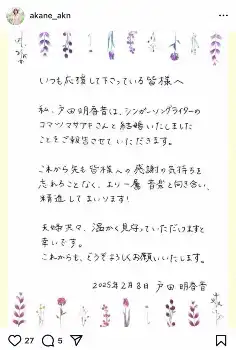 akane_akn
いつも応援して下さっている皆様へ
私、戸田明香音は、シンガーソングライターの
コマツマサアキさんと結婚いたしました
ことをご報告させていただきます。
これから先も皆様への感謝の気持ちを
忘れることなく、より一層 音楽と向き合い、
精進してまいります!
夫婦共々、温かく見守っていただけますと
幸いです。
これからも、どうぞよろしくお願いいたします。
2025年2月8日 戸田 明香音
27
5